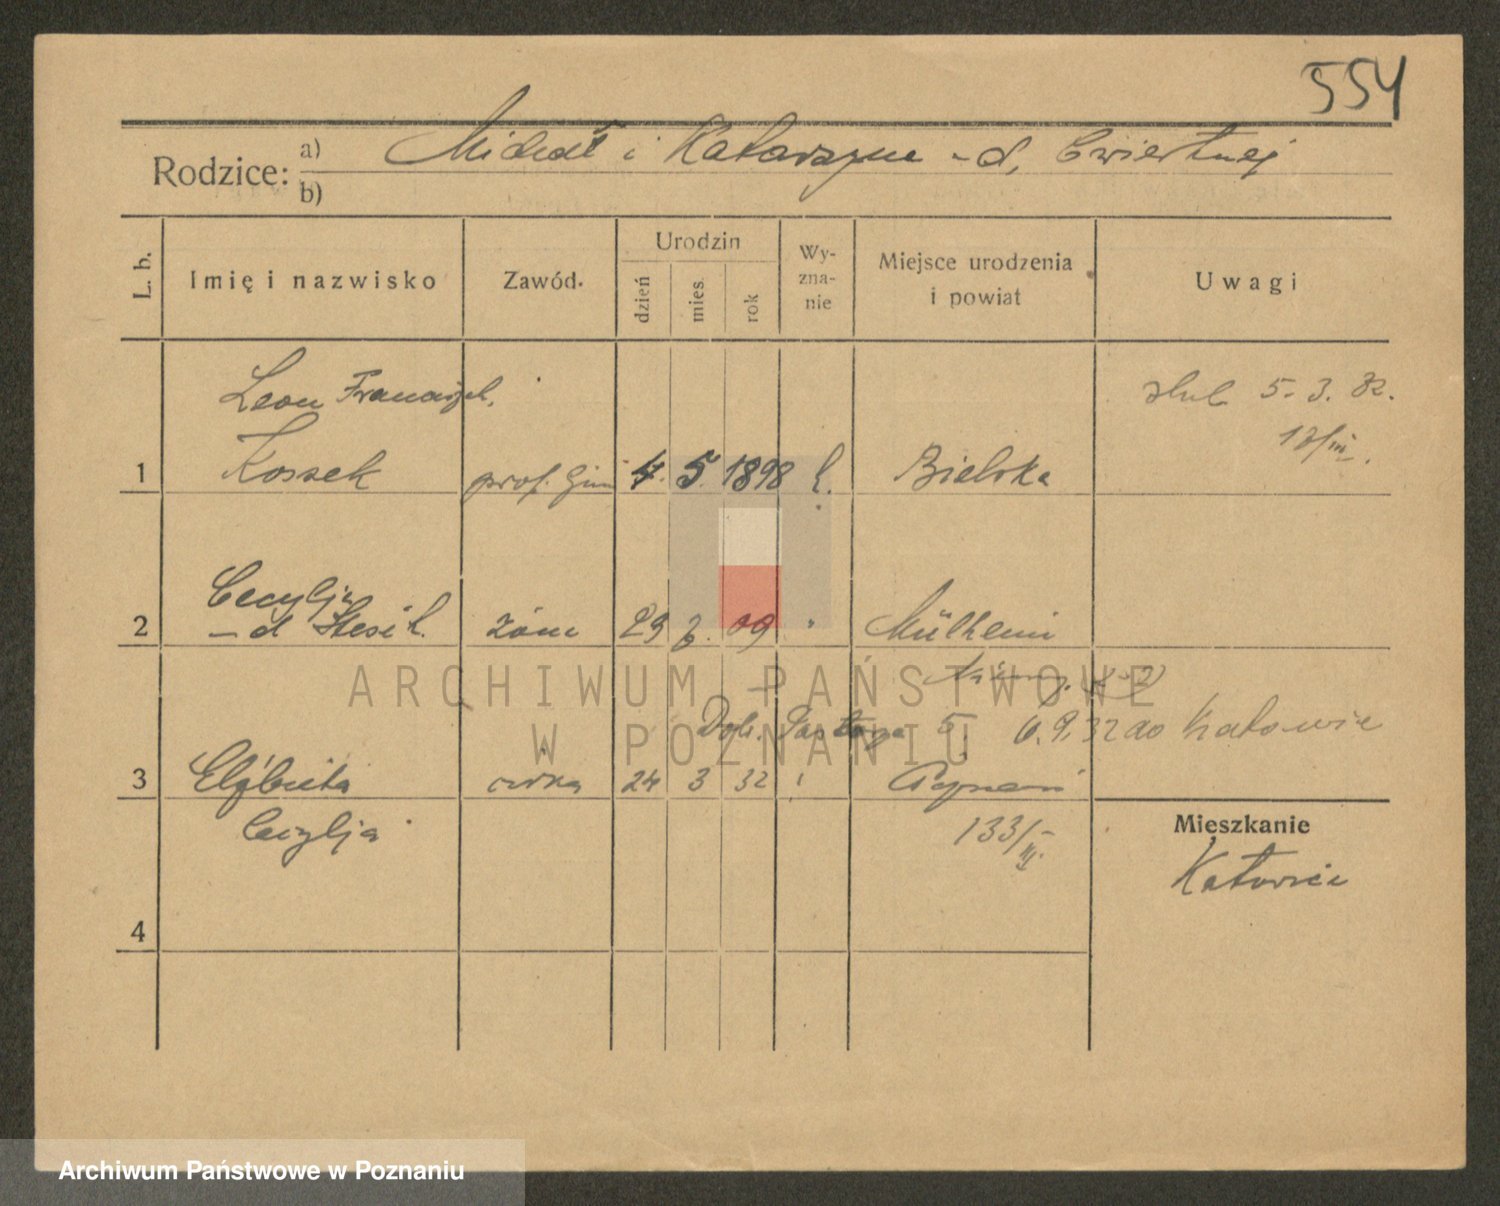 554
Rodzice: a) Michał i Katarzyna - d. Ćwiertnej
b)
L. b.
Imię i nazwisko
Zawód.
Urodzin
dzień
mies.
rok
Wy-
zna-
nie
Miejsce urodzenia
i powiat
Uwagi
Leon Franciszek
ślub 5. 3. 32.
1 Kossek prof. Gim 4. 5. 1898 Bielska
Cecylja
2 - d. żona 29 09 " Mülheim
ARCHIWUM PAŃSTWOWE
W POZNANIU
5 6.9.32 do Katowic
3 Elżbieta córka 24 3 32 Poznań
Cecylja
133/III.
Mieszkanie
Katowice
4
Archiwum Państwowe w Poznaniu